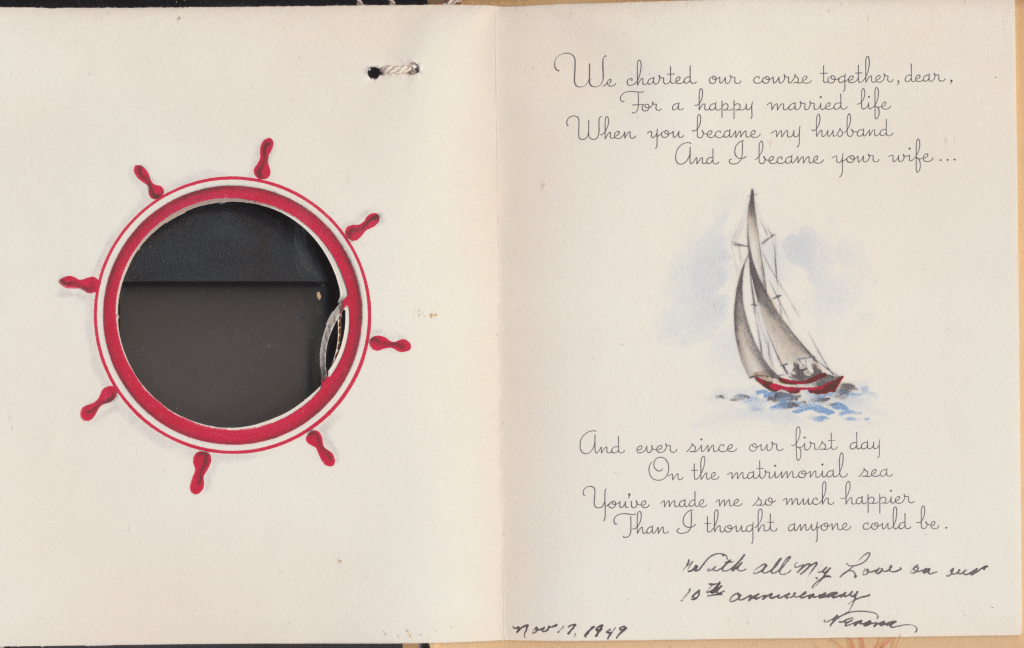 We charted our course together, dear,
For a happy married life
When you became my husband
And I became your wife...
And ever since our first day
On the matrimonial sea
You've made me so much happier
Than I thought anyone could be.
With all My Love on our
10th anniversary
Verona
Nov 17, 1949